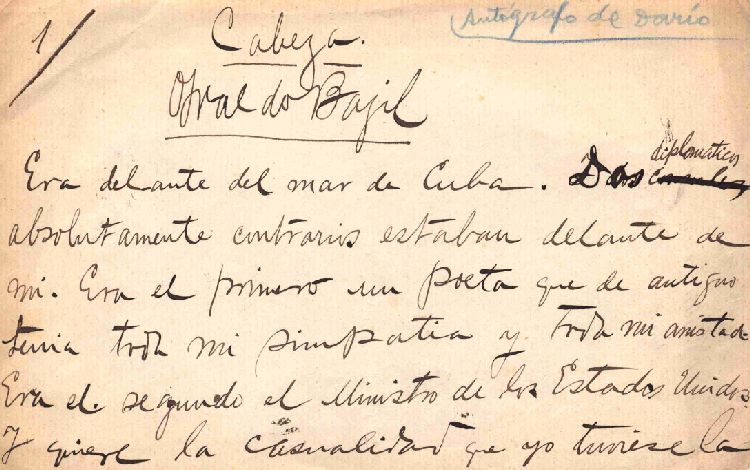 1/
Autógrafo de Darío
Cabeza.
Osvaldo Bazil
diplomáticos
Era delante del mar de Cuba. Dos
absolutamente contrarios estaban delante de
mi. Era el primero un poeta que de antiguo
tenia toda mi simpatia y toda mi amistad
Era el segundo el Ministro de los Estados Unidos
Y quiere la casualidad que yo tuviese la